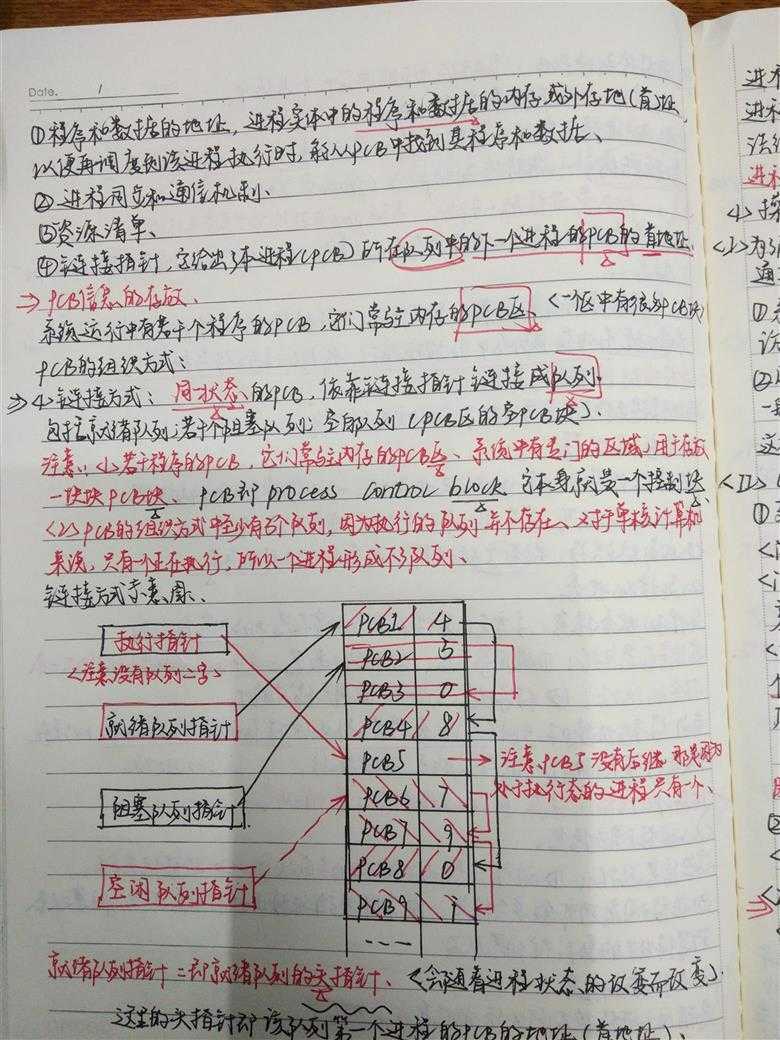 Date. 1
①程序和数据的地址,进程实体中的程序和数据的内存或外存地(首)址,
以便再调度到该进程执行时,能从PCB中找到其程序和数据、
②进程同步和通信机制、
③资源清单、
④链接指针,它给出了本进程(PCB)所在队列中的下一个进程的PCB的首地址、
⇒PCB信息的存放、
系统运行中有若干个程序的PCB,它们常驻内存的PCB区、<一个区中有很多PCB块>
PCB的组织方式:
⇒<1>链接方式:同状态的PCB,依靠链接指针链接成队列.
包括就绪队列;若干个阻塞队列;空闲队列(PCB区的空PCB块).
注意:<1>若干程序的PCB,它们常驻内存的PCB区、系统中有专门的区域,用于存放
一块块PCB块、PCB即process control block 它本身就是一个控制块、
<2>PCB的组织方式中至少有3个队列,因为执行的队列并不存在、又对于单核计算机
来说,只有一个正在执行,所以一个进程形成不了队列、
链接方式示意图、
执行指针
<注意没有队列二字>
就绪队列指针
阻塞队列指针
空闲队列指针
PCB1 4
PCB2 3
PCB3 0
PCB4 8
PCB5
PCB6 7
PCB7 9
PCB8 0
PCB9
注意,PCB5没有后继,那是因为
处于执行态的进程只有一个、
就绪队列指针=即就绪队列的头指针、<会随着进程状态的改变而改变>
这里的头指针即该队列第一个进程的PCB的地址(首地址)、